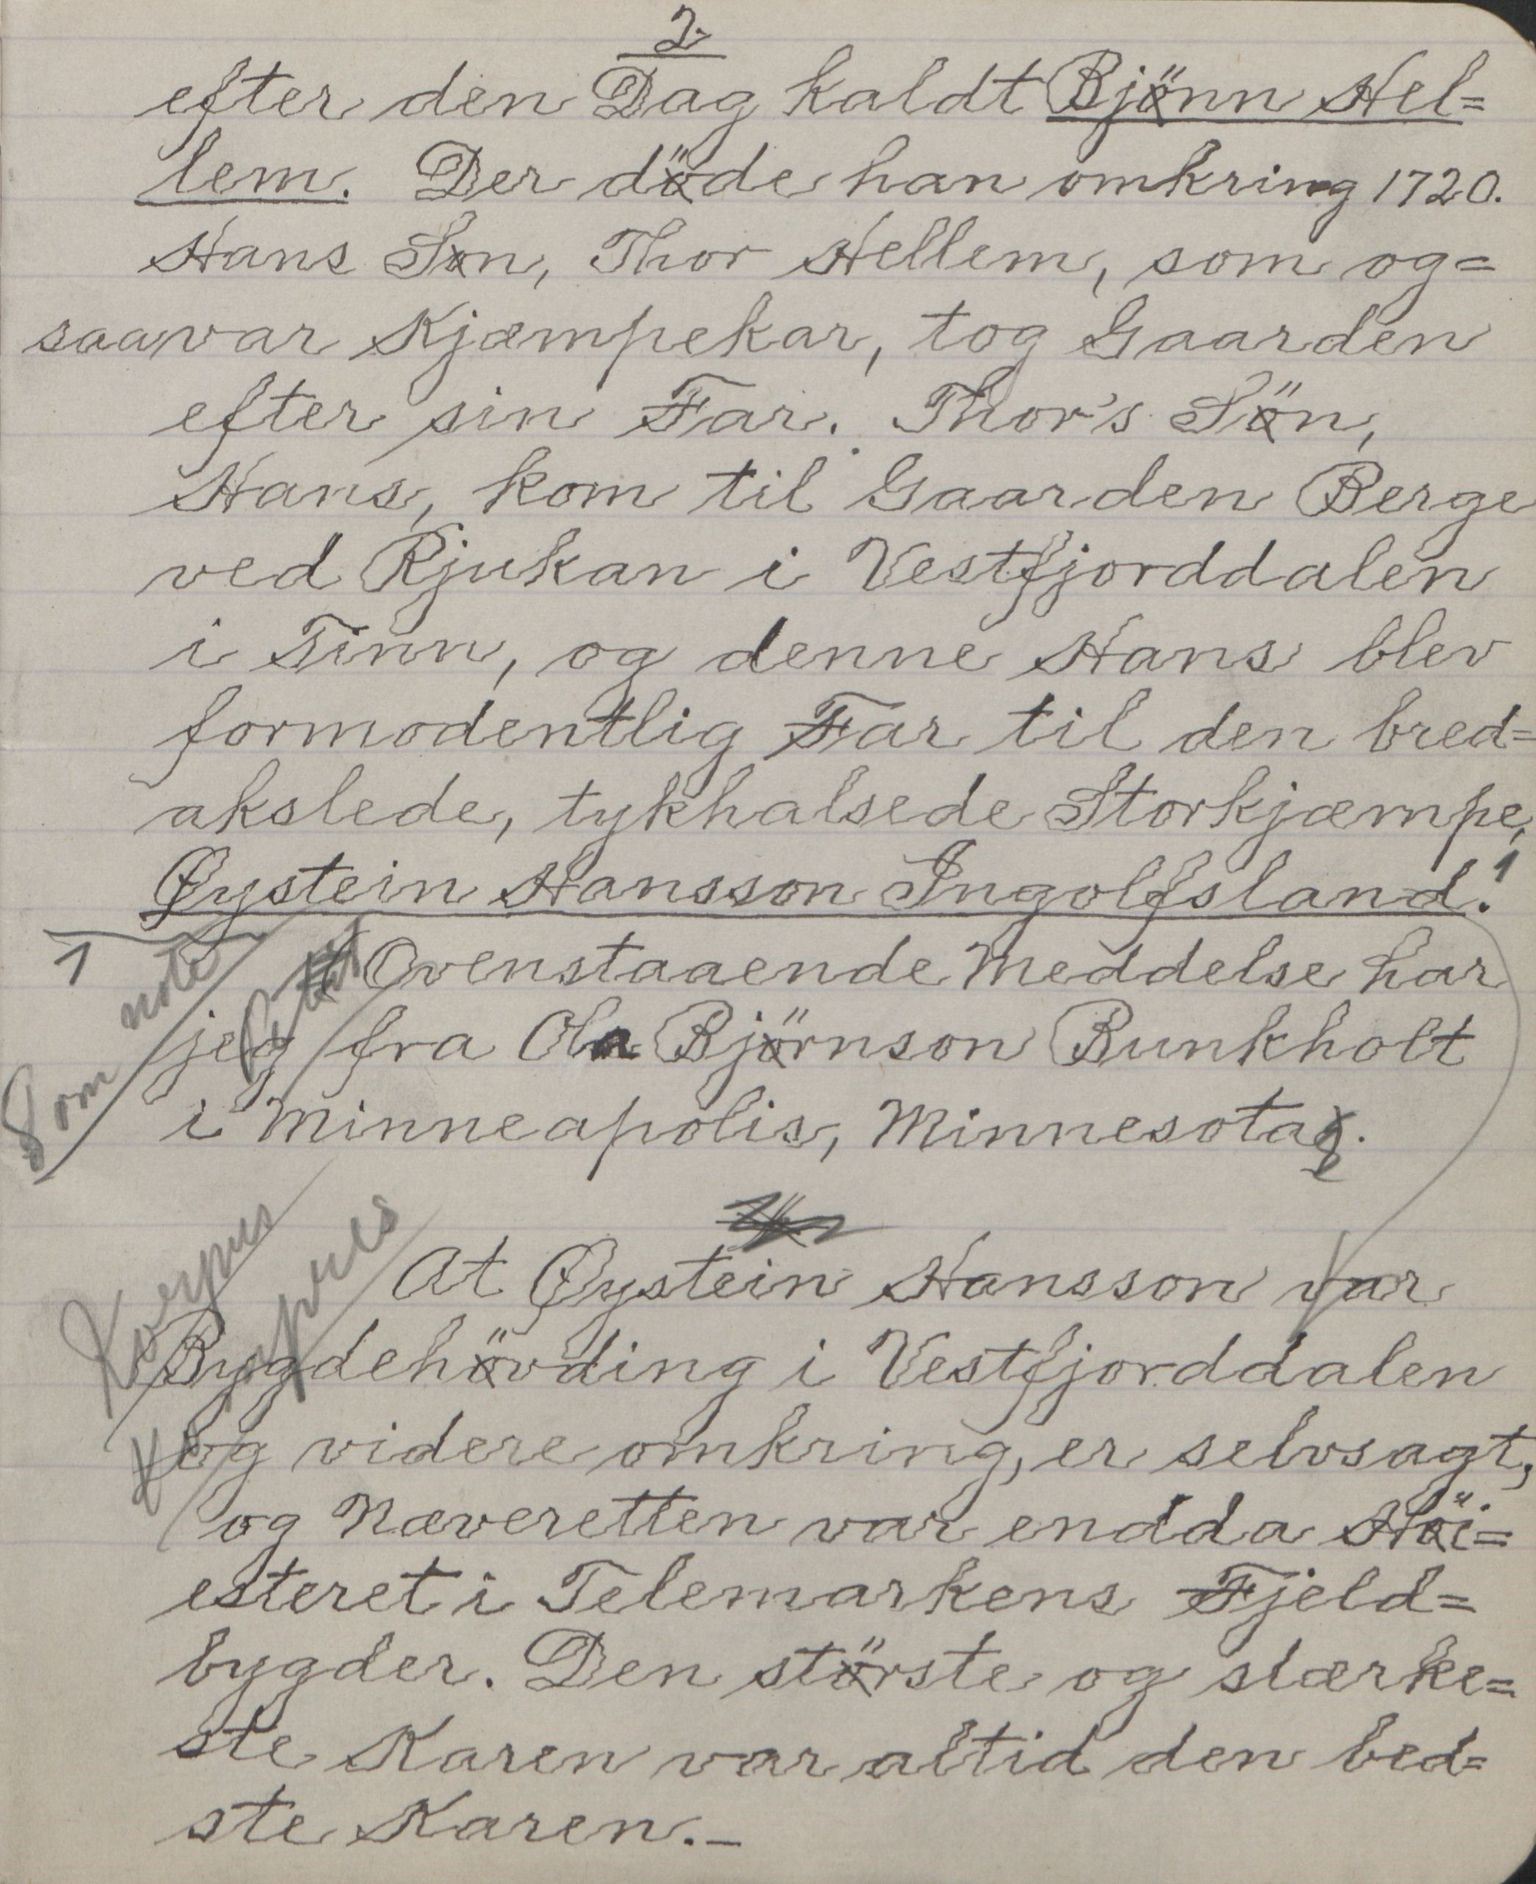 2.
efter den Dag kaldt Bjønn Hel=
lem. Der døde han omkring 1720.
Hans Søn, Thor Hellem, som og=
saa var Kjæmpekar, tog Gaarden
efter sin Far. Thor's Søn,
Hans, kom til Gaarden Berge
ved Rjukan i Vestfjorddalen
i Tinn, og denne Hans blev
formodentlig Far til den bred=
akslede, tykhalsede Storkjæmpe,
Øystein Hansson Ingolfsland.1
1
Som note
Petit
Ovenstaaende Meddelse har
jeg fra Ola Bjørnson Bunkholt
i Minneapolis, Minnesota.
Korpus
At Øystein Hansson var
Bygdehøvding i Vestfjorddalen
og videre omkring, er selvsagt,
og Næveretten var endda Høi=
esteret i Telemarkens Fjeld=
bygder. Den største og stærke=
ste Karen var altid den bed=
ste Karen.-